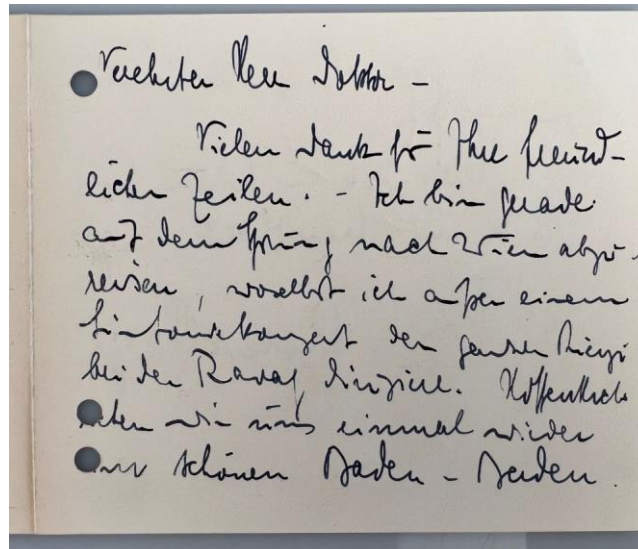 Verehrter Herr Doktor –
Vielen Dank für Ihre freund-
lichen Zeilen. – Ich bin gerade
auf dem Sprung nach Wien abzu-
reisen, woselbst ich außer einem
Sinfoniekonzert den ganzen Rienzi
bei der Ravag dirigiere. Hoffentlich
sehen wir uns einmal wieder
im schönen Baden-Baden.